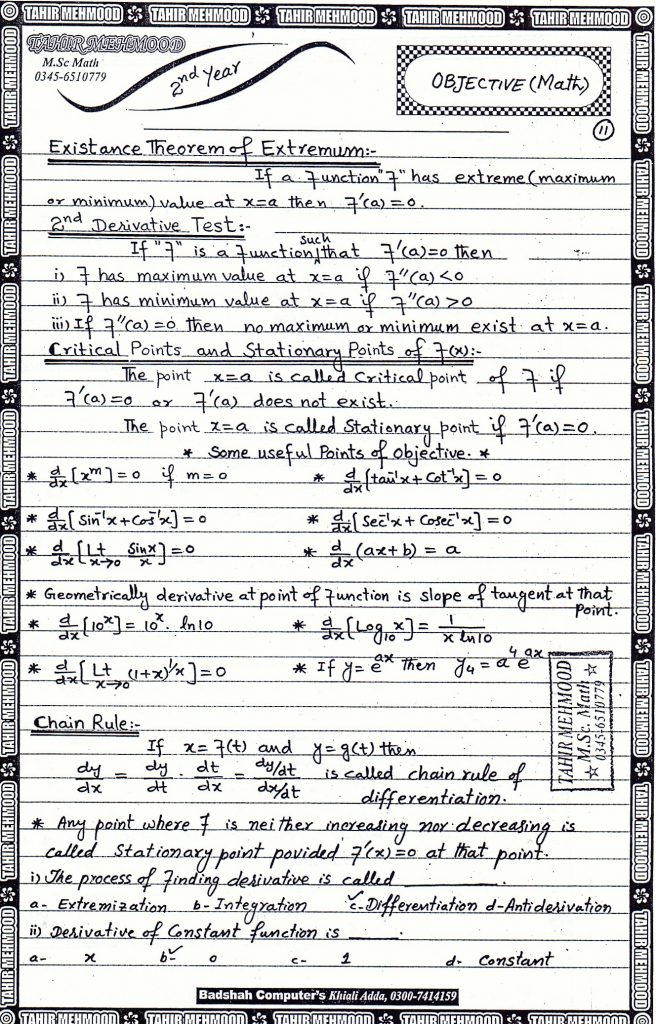 TAHIR MEHMOOD TAHIR MEHMOOD TAHIR MEHMOOD TAHIR MEHMOOD TAHIR MEHMOOD
TAHIR MEHMOOD
M.Sc Math
0345-6510779
2nd Year
OBJECTIVE (Math)
11
Existance Theorem of Extremum:-
If a function "f" has extreme (maximum
or minimum) value at x=a then f'(a)=0.
2nd Derivative Test:-
If "f" is a function such that f'(a)=0 then
i) f has maximum value at x=a if f''(a)<0
ii) f has minimum value at x=a if f''(a)>0
iii) If f''(a)=0 then no maximum or minimum exist at x=a.
Critical Points and Stationary Points of f(x):-
The point x=a is called Critical point of f if
f'(a)=0 or f'(a) does not exist.
The point x=a is called Stationary point if f'(a)=0.
* Some useful Points of Objective. *
* d/dx [x^m] = 0 if m=0 * d/dx [tan⁻¹x + Cot⁻¹x] = 0
* d/dx [Sin⁻¹x + Cos⁻¹x] = 0 * d/dx [Sec⁻¹x + Cosec⁻¹x] = 0
* d/dx [Lt x→0 Sinx/x] = 0 * d/dx (ax+b) = a
* Geometrically derivative at point of function is slope of tangent at that
Point.
* d/dx [10^x] = 10^x . ln10 * d/dx [Log₁₀ x] = 1/(x ln10)
* d/dx [Lt x→0 (1+x)^1/x] = 0 * If y = e^ax then y₄ = a⁴ e^ax
TAHIR MEHMOOD
☆ M.Sc. Math ☆
0345-6510779
Chain Rule:-
If x = f(t) and y = g(t) then
dy/dx = dy/dt . dt/dx = (dy/dt)/(dx/dt) is called chain rule of
differentiation.
* Any point where f is neither increasing nor decreasing is
called Stationary point povided f'(x)=0 at that point.
i) The process of finding derivative is called ______.
a- Extremization b- Integration ✓c- Differentiation d- Antiderivation
ii) Derivative of Constant function is ____.
a- x b-✓ 0 c- 1 d- Constant
Badshah Computer's Khiali Adda, 0300-7414159
TAHIR MEHMOOD TAHIR MEHMOOD TAHIR MEHMOOD TAHIR MEHMOOD TAHIR MEHMOOD